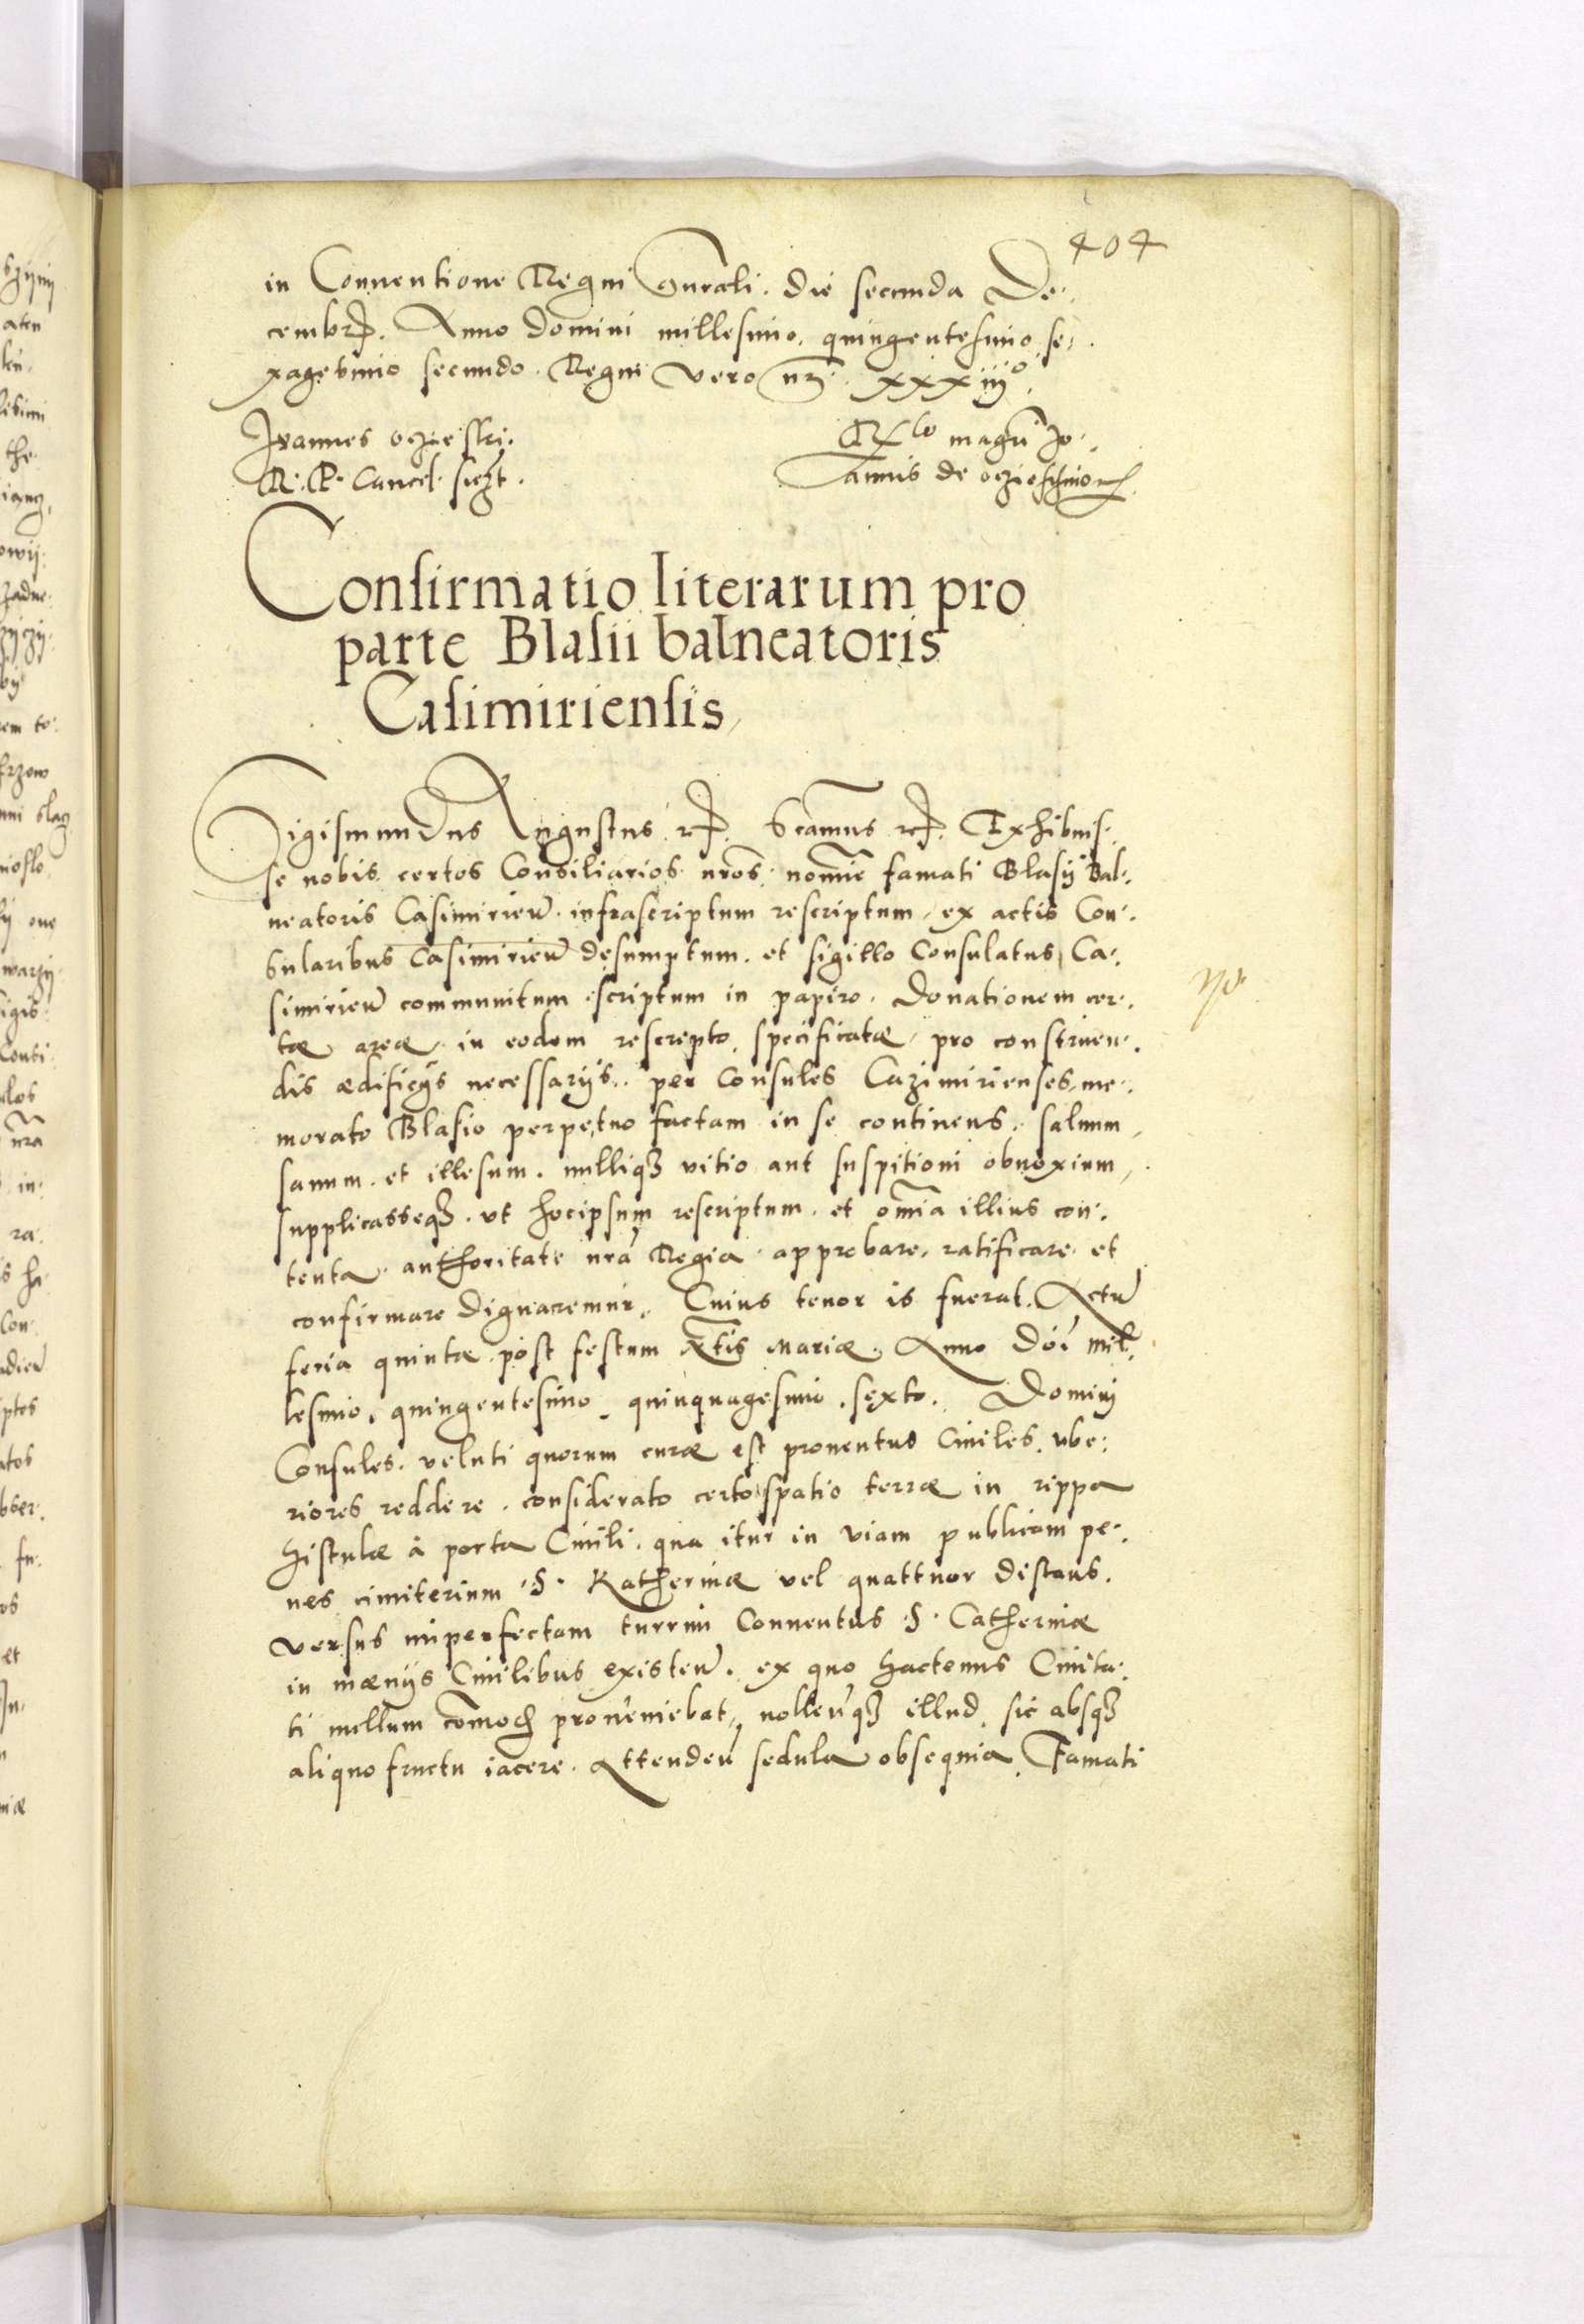 404
in Conuentione Regni Gnrali. die secunda De-
cembr. Anno Domini millesimo, quingentesimo se-
xagesimo secundo. Regni vero nri. XXXiiijº.
Joannes oczieski.
R. P. Cancel. sszt.
Rlo magn Jo-
annis de oczieschino
Confirmatio literarum pro
parte Blasii balneatoris
Casimiriensis
Sigismundus Augustus etc. Scamus etc. Exhibuis-
se nobis certos Consiliarios nros nomine famati Blasij Bal-
neatoris Casimirien infrascriptum rescriptum, ex actis Con-
sularibus Casimirien desumptum. et sigillo Consulatus Ca-
simirien communitum scriptum in papiro. Donationem cer-
tæ areæ in eodem rescripto specificatæ, pro construen-
dis ædificijs necessarijs. per Consules Cazimirienses me-
morato Blasio perpetuo factam in se continens. saluum,
sanum. et illesum. nulliq3 vitio aut suspitioni obnoxium,
supplicasseq3. vt hocipsum rescriptum. et omnia illius con-
tenta authoritate nra Regia approbare, ratificare et
confirmare dignaremur. Cuius tenor is fuerat. Actu
feria quinta post festum Mariæ. Anno Doi mil-
lesimo, quingentesimo quinquagesimo sexto. Dominj
Consules. veluti quorum curæ est prouentus Ciuiles vbe-
riores reddere. considerato certo spatio terræ in rippa
Histulæ à porta Ciuili. qua itur in viam publicam pe-
nes cimiterium .S. Katherinæ vel quattuor distans.
versus imperfectam turrim Conuentus .S. Catherinæ
in mœnijs Ciuilibus existen. ex quo hactenus Ciuita-
ti nullum comod proueniebat, nollenq3 illud sic absq3
aliquo fructu iacere. Attenden sedula obsequia Famati